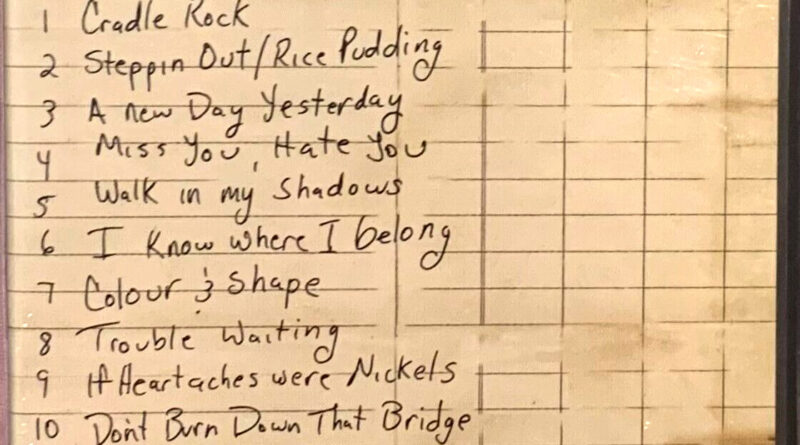 1 Cradle Rock
2 Steppin Out/Rice Pudding
3 A new Day Yesterday
4 Miss You, Hate You
5 Walk in my Shadows
6 I Know Where I belong
7 Colour & Shape
8 Trouble Waiting
9 If Heartaches were Nickels
10 Don't Burn Down That Bridge